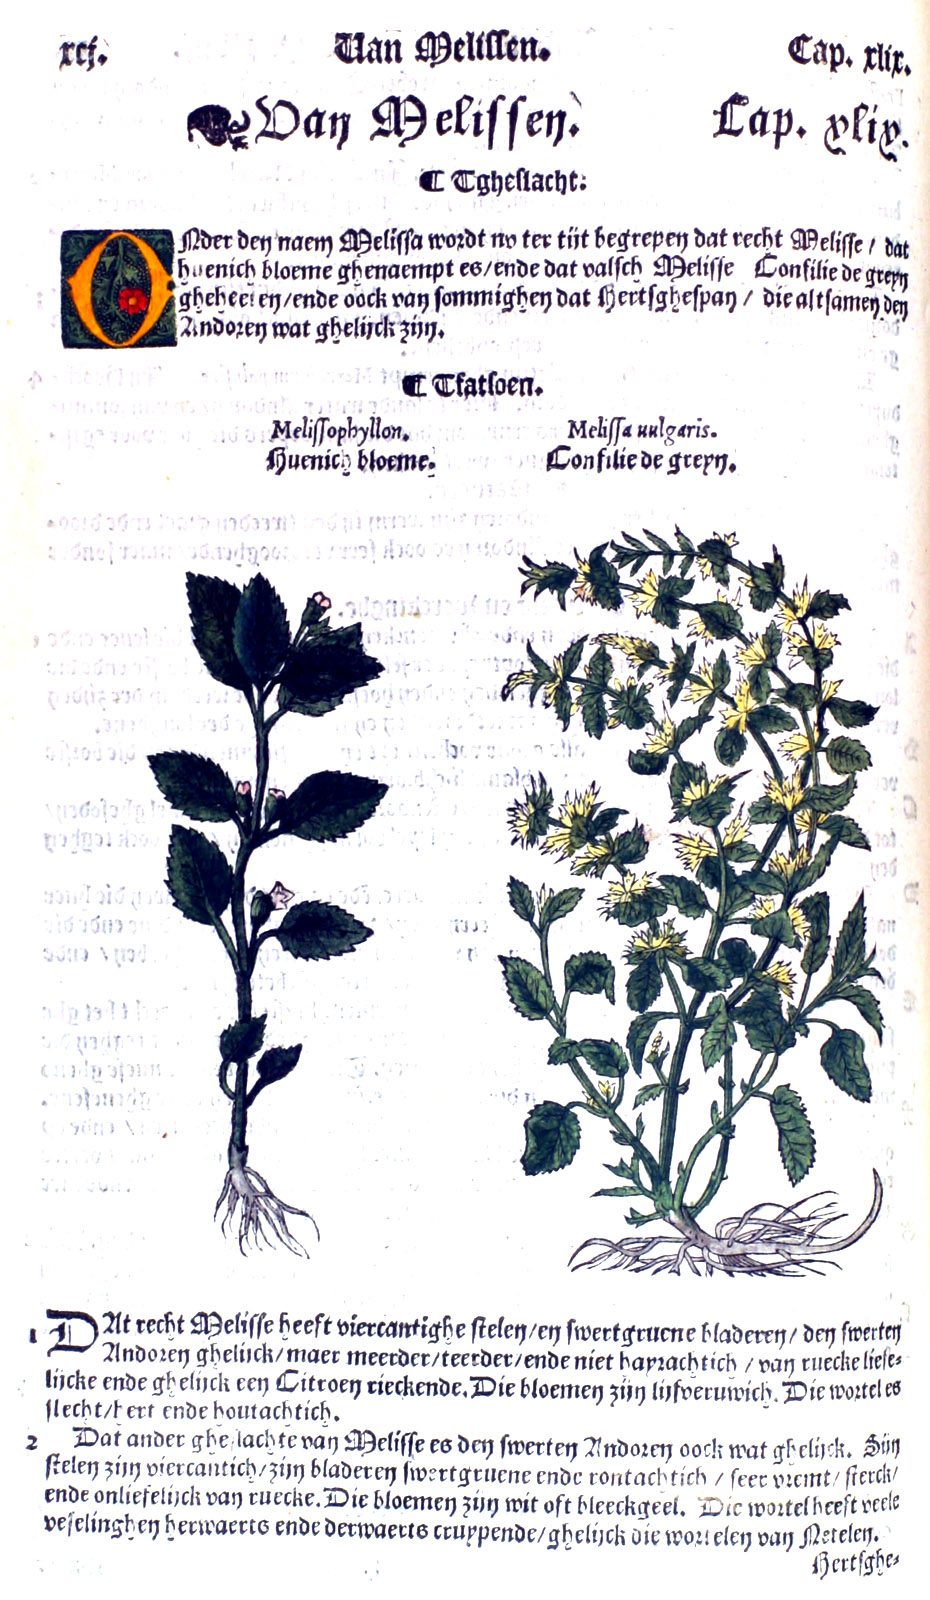 xcj. Van Melissen. Cap. xlix.
Van Melissen. Cap. xlix.
¶ Tgheslacht:
ONder den naem Melissa wordt nv ter tijt begrepen dat recht Melisse / dat
huenich bloeme ghenaempt es/ende dat valsch Melisse Confilie de greyn
gheheeten/ende oock van sommighen dat Hertsghespan / die altsamen den
Andoren wat ghelijck zijn.
¶ Tfatsoen.
Melissophyllon. Melissa uulgaris.
Huenich bloeme. Confilie de greyn.
1 DAt recht Melisse heeft viercantighe stelen/en swertgruene bladeren/ den swerten
Andoren ghelijck/maer meerder/teerder/ende niet hayrachtich / van ruecke liefe-
lijcke ende ghelijck een Citroen rieckende. Die bloemen zijn lijfveruwich. Die wortel es
slecht/hert ende houtachtich.
2 Dat ander gheslachte van Melisse es den swerten Andoren oock wat ghelijck. Sijn
stelen zijn viercantich/zijn bladeren swertgruene ende rontachtich / seer vremt/ sterck/
ende onliefelijck van ruecke. Die bloemen zijn wit oft bleeckgeel. Die wortel heeft veele
veselinghen herwaerts ende derwaerts cruypende/ghelijck die wortelen van Netelen.
Hertsghe-